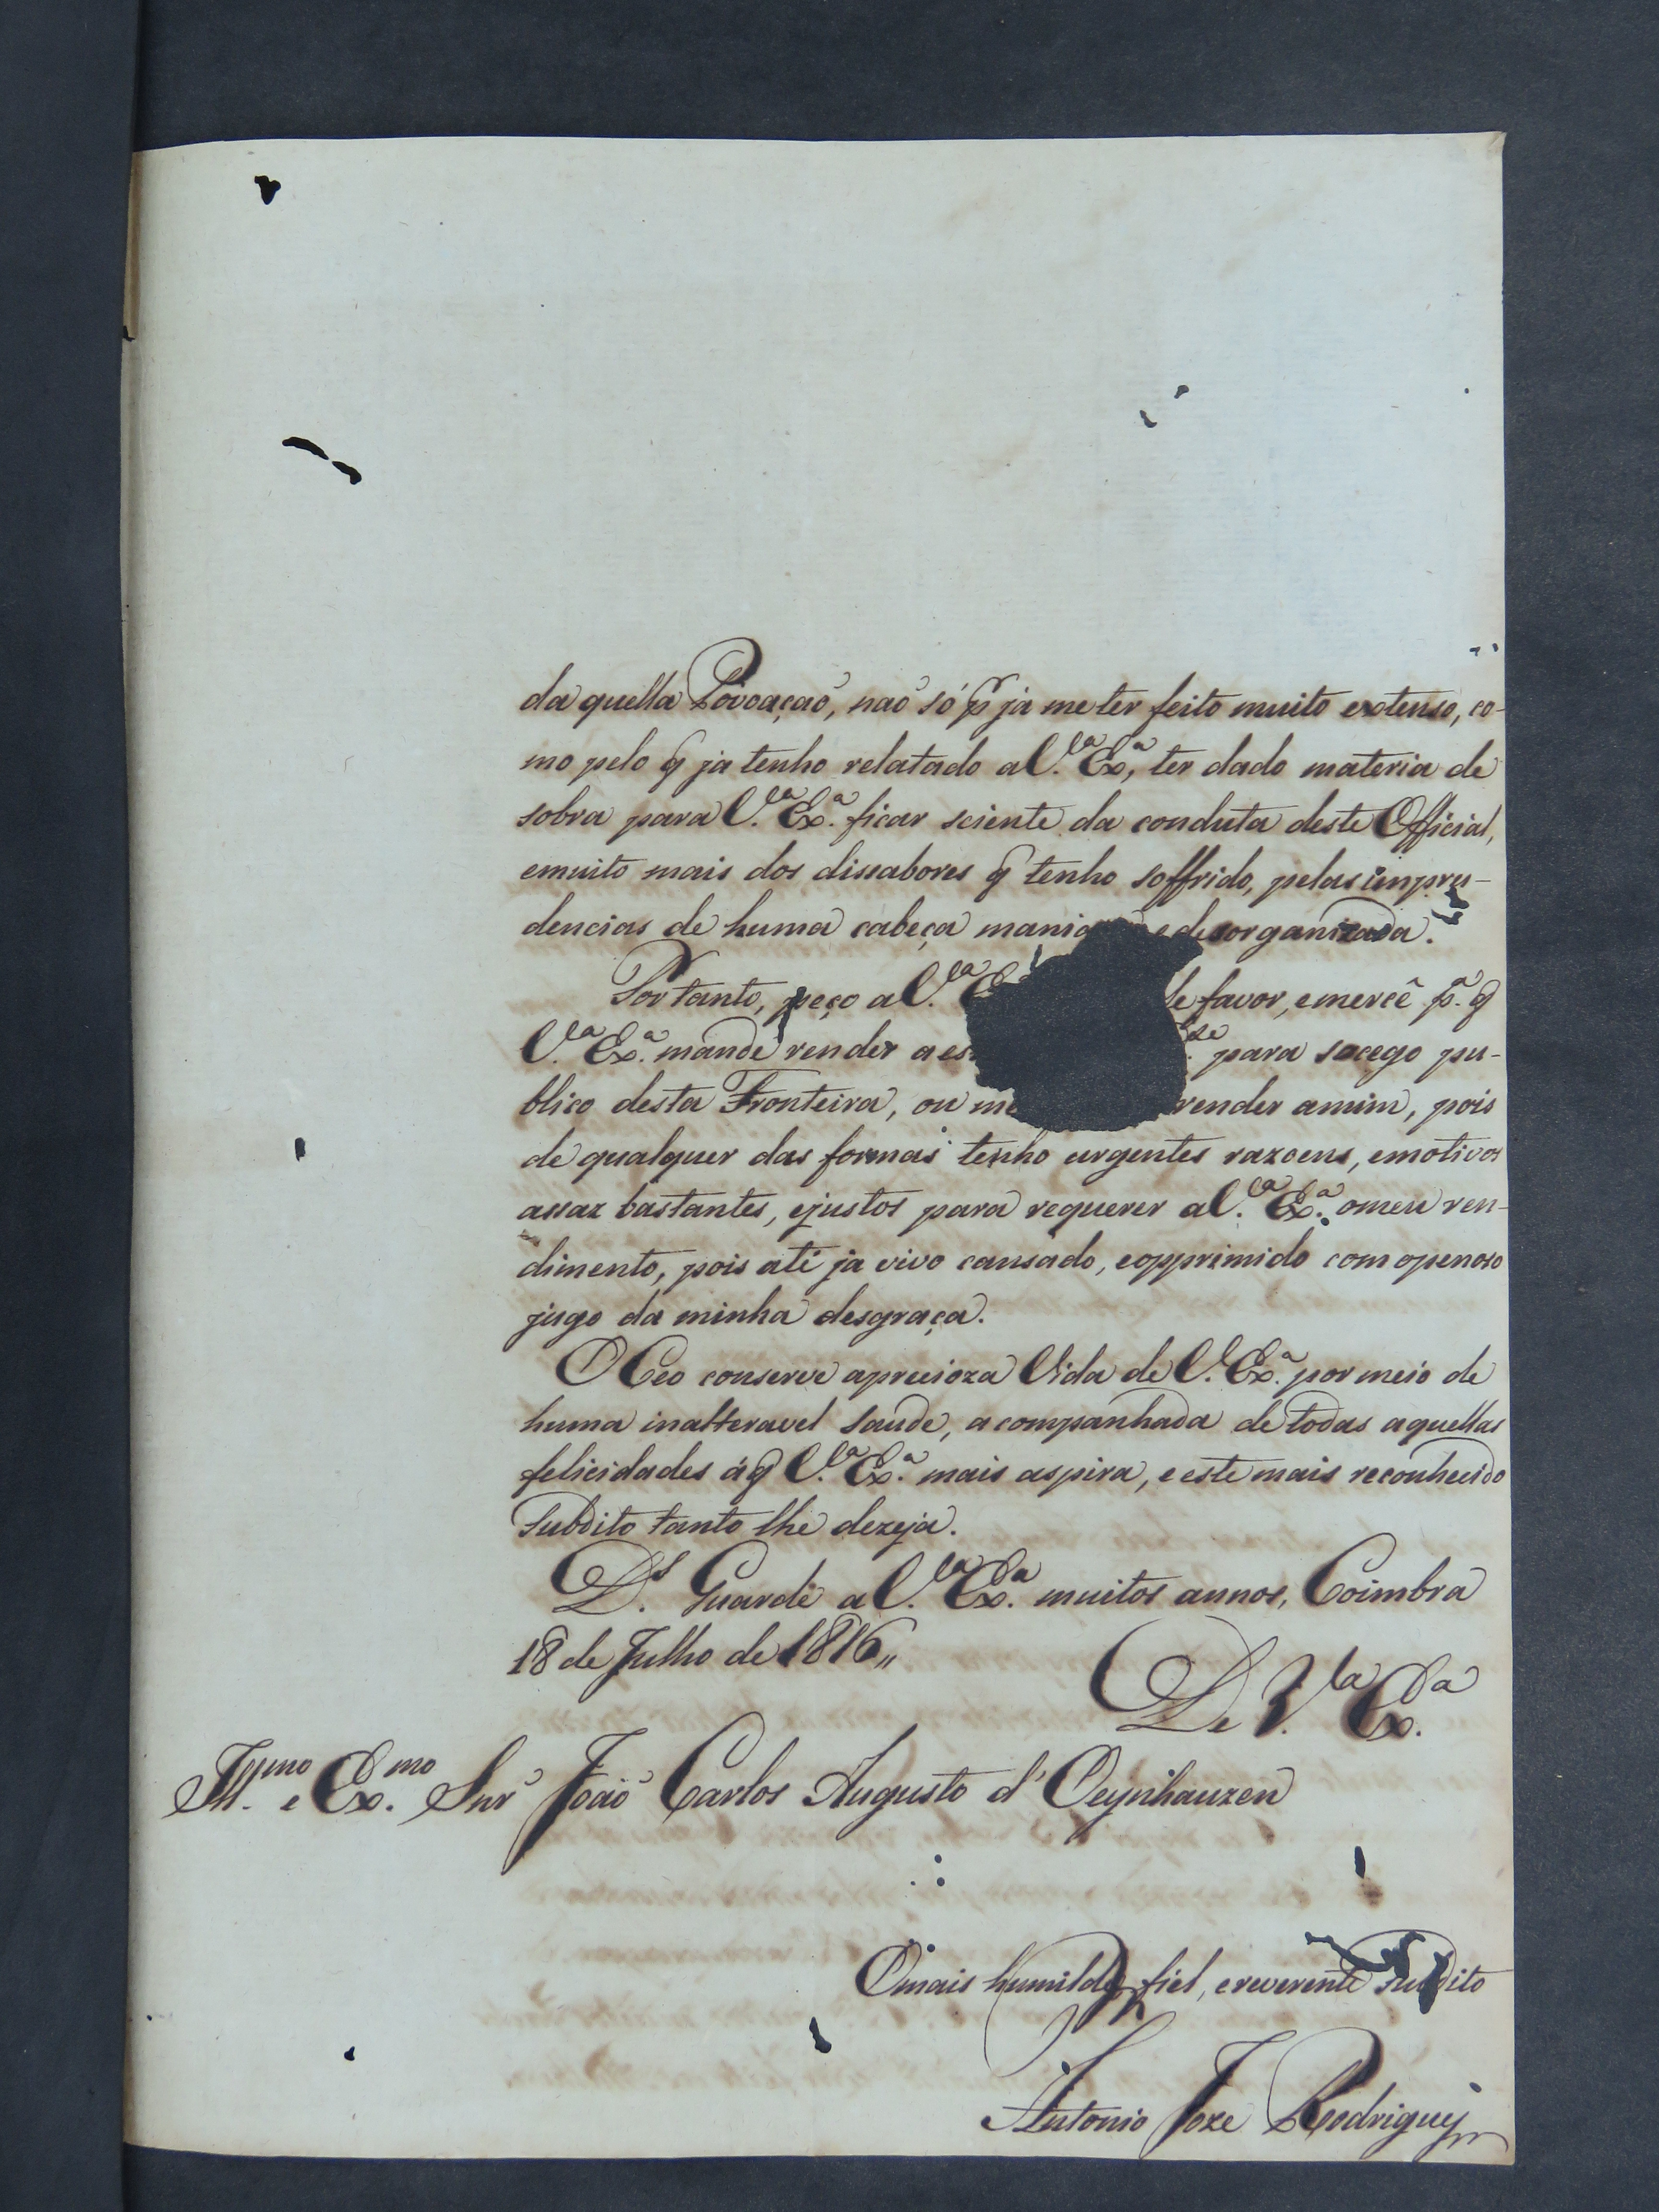 da quella Povoaçaõ, naõ só p̃ ja me ter feito muito extenso, co-
mo pelo q̃ ja tenho relatado a V.ª Ex.ª, ter dado materia de
sobra para V.ª Ex.ª ficar sciente da conduta deste Official,
e muito mais dos dissabores q̃ tenho soffrido, pelas impru-
dencias de huma cabeça mania e desorganizada.
Portanto, peço a V.ª E favor, e mercê p.ª q̃
V.ª Ex.ª mande render a es para socego pu-
blico desta Fronteira, ou me render a mim, pois
de qualquer das formas tenho urgentes razoens, e motivos
assaz bastantes, e justos para requerer a V.ª Ex.ª o meu ren-
dimento, pois até ja vivo cansado, e opprimido com o penozo
jugo da minha desgraça.
O Ceo conserve a precioza Vida de V. Ex.ª por meio de
huma inalteravel saude, acompanhada de todas aquellas
felicidades á q̃ V.ª Ex.ª mais aspira, e este mais reconhecido
Subdito tanto lhe dezeja.
D.s Guarde a V.ª Ex.ª muitos annos, Coimbra
18 de Julho de 1816,,
De V.ª Ex.ª
Ill.mo e Ex.mo Snr̃ Joaõ Carlos Augusto d'Oeynhauzen
O mais humilde, fiel, e reverente Subdito
Antonio Joze Rodrigues